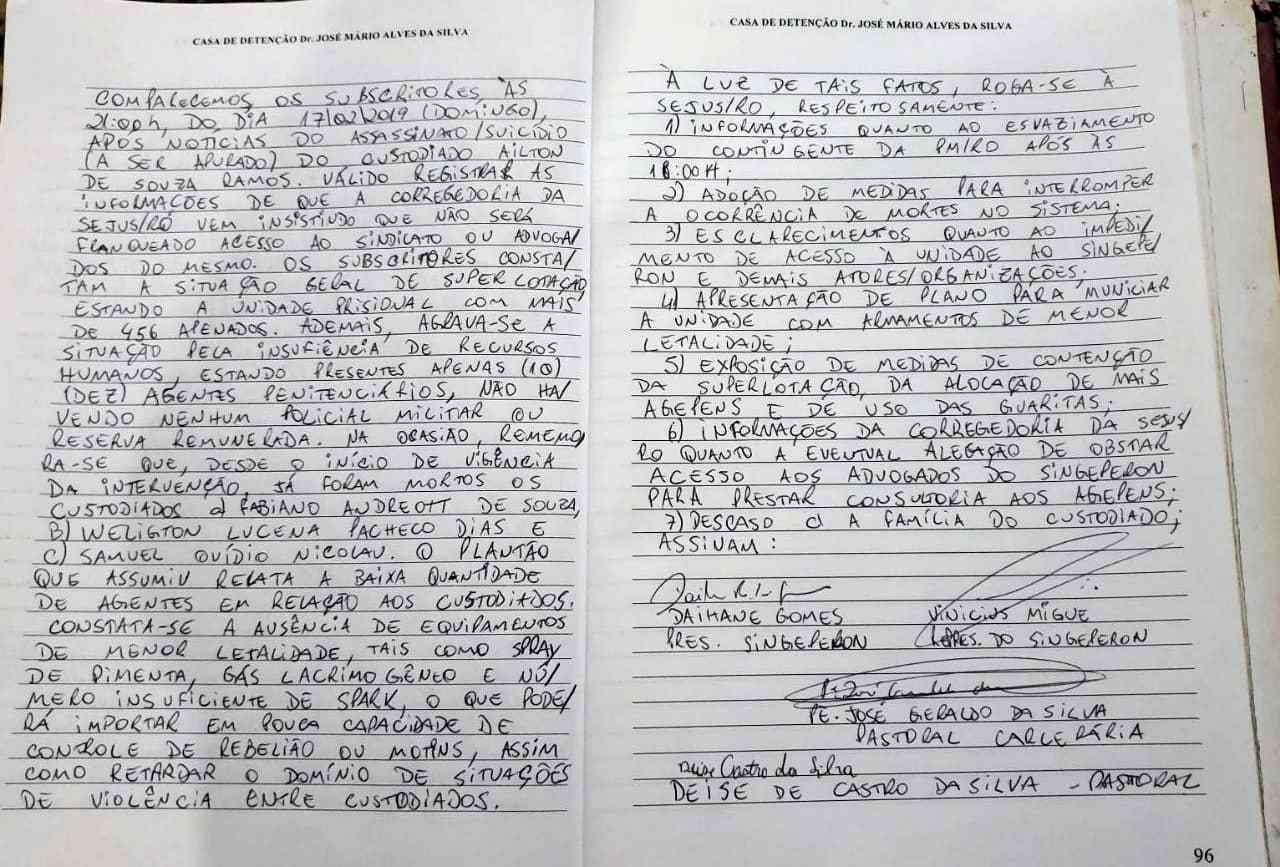 CASA DE DETENÇÃO Dr. JOSÉ MÁRIO ALVES DA SILVA
COMPARECEMOS, OS SUBSCRITORES, ÀS
21:00h, DO DIA 17/02/2019 (DOMINGO),
APÓS NOTÍCIAS DO ASSASSINATO/SUICÍDIO
(A SER APURADO) DO CUSTODIADO AILTON
DE SOUZA RAMOS. VÁLIDO REGISTRAR AS
INFORMAÇÕES DE QUE A CORREGEDORIA DA
SEJUS/RO VEM INSISTINDO QUE NÃO SERÁ
FRANQUEADO ACESSO AO SINDICATO OU ADVOGA/
DOS DO MESMO. OS SUBSCRITORES CONSTA/
TAM A SITUAÇÃO GERAL DE SUPERLOTAÇÃO,
ESTANDO A UNIDADE PRISIONAL COM MAIS
DE 456 APENADOS. ADEMAIS, AGRAVA-SE A
SITUAÇÃO PELA INSUFIÊNCIA DE RECURSOS
HUMANOS, ESTANDO PRESENTES APENAS (10)
(DEZ) AGENTES PENITENCIÁRIOS, NÃO HA/
VENDO NENHUM POLICIAL MILITAR OU
RESERVA REMUNERADA. NA OCASIÃO, REMEMO/
RA-SE QUE, DESDE O INÍCIO DE VIGÊNCIA
DA INTERVENÇÃO, JÁ FORAM MORTOS OS
CUSTODIADOS a) FABIANO ANDREOTT DE SOUZA,
B) WELIGTON LUCENA PACHECO DIAS E
C) SAMUEL OVÍDIO NICOLAU. O PLANTÃO
QUE ASSUMIU RELATA A BAIXA QUANTIDADE
DE AGENTES EM RELAÇÃO AOS CUSTODIADOS.
CONSTATA-SE A AUSÊNCIA DE EQUIPAMENTOS
DE MENOR LETALIDADE, TAIS COMO SPRAY
DE PIMENTA, GÁS LACRIMOGÊNEO E NÚ/
MERO INSUFICIENTE DE SPARK, O QUE PODE/
RÁ IMPORTAR EM POUCA CAPACIDADE DE
CONTROLE DE REBELIÃO OU MOTINS, ASSIM
COMO RETARDAR O DOMÍNIO DE SITUAÇÕES
DE VIOLÊNCIA ENTRE CUSTODIADOS.
CASA DE DETENÇÃO Dr. JOSÉ MÁRIO ALVES DA SILVA
À LUZ DE TAIS FATOS, ROGA-SE À
SEJUS/RO, RESPEITOSAMENTE:
1) INFORMAÇÕES QUANTO AO ESVAZIAMENTO
DO CONTINGENTE DA PM/RO APÓS ÀS
18:00H;
2) ADOÇÃO DE MEDIDAS PARA INTERROMPER
A OCORRÊNCIA DE MORTES NO SISTEMA;
3) ESCLARECIMENTOS QUANTO AO IMPEDI/
MENTO DE ACESSO À UNIDADE AO SINGEPE/
RON E DEMAIS ATORES/ORGANIZAÇÕES;
4) APRESENTAÇÃO DE PLANO PARA MUNICIAR
A UNIDADE COM ARMAMENTOS DE MENOR
LETALIDADE;
5) EXPOSIÇÃO DE MEDIDAS DE CONTENÇÃO
DA SUPERLOTAÇÃO, DA ALOCAÇÃO DE MAIS
AGEPENS, E DE USO DAS GUARITAS;
6) INFORMAÇÕES DA CORREGEDORIA DA SEJUS/
RO QUANTO A EVENTUAL ALEGAÇÃO DE OBSTAR
ACESSO AOS ADVOGADOS DO SINGEPERON
PARA PRESTAR CONSULTORIA AOS AGEPENS;
7) DESCASO c/ A FAMÍLIA DO CUSTODIADO;
ASSINAM:
DAIHANE GOMES VINICIUS MIGUE
PRES. SINGEPERON DO SINGEPERON
PE. JOSÉ GERALDO DA SILVA
PASTORAL CARCERÁRIA
Deise Castro da Silva
DEISE DE CASTRO DA SILVA - PASTORAL
96